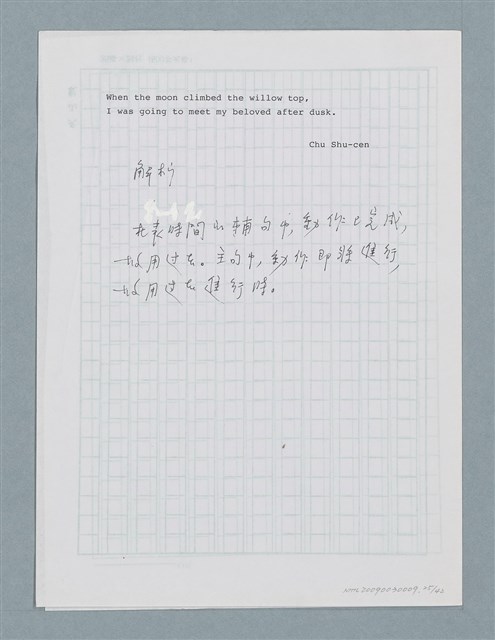 When the moon climbed the willow top,
I was going to meet my beloved after dusk.
Chu Shu-cen
解析
在表時間的輔句中,動作已完成,
故用过去。主句中,動作即將進行,
故用过去進行時。